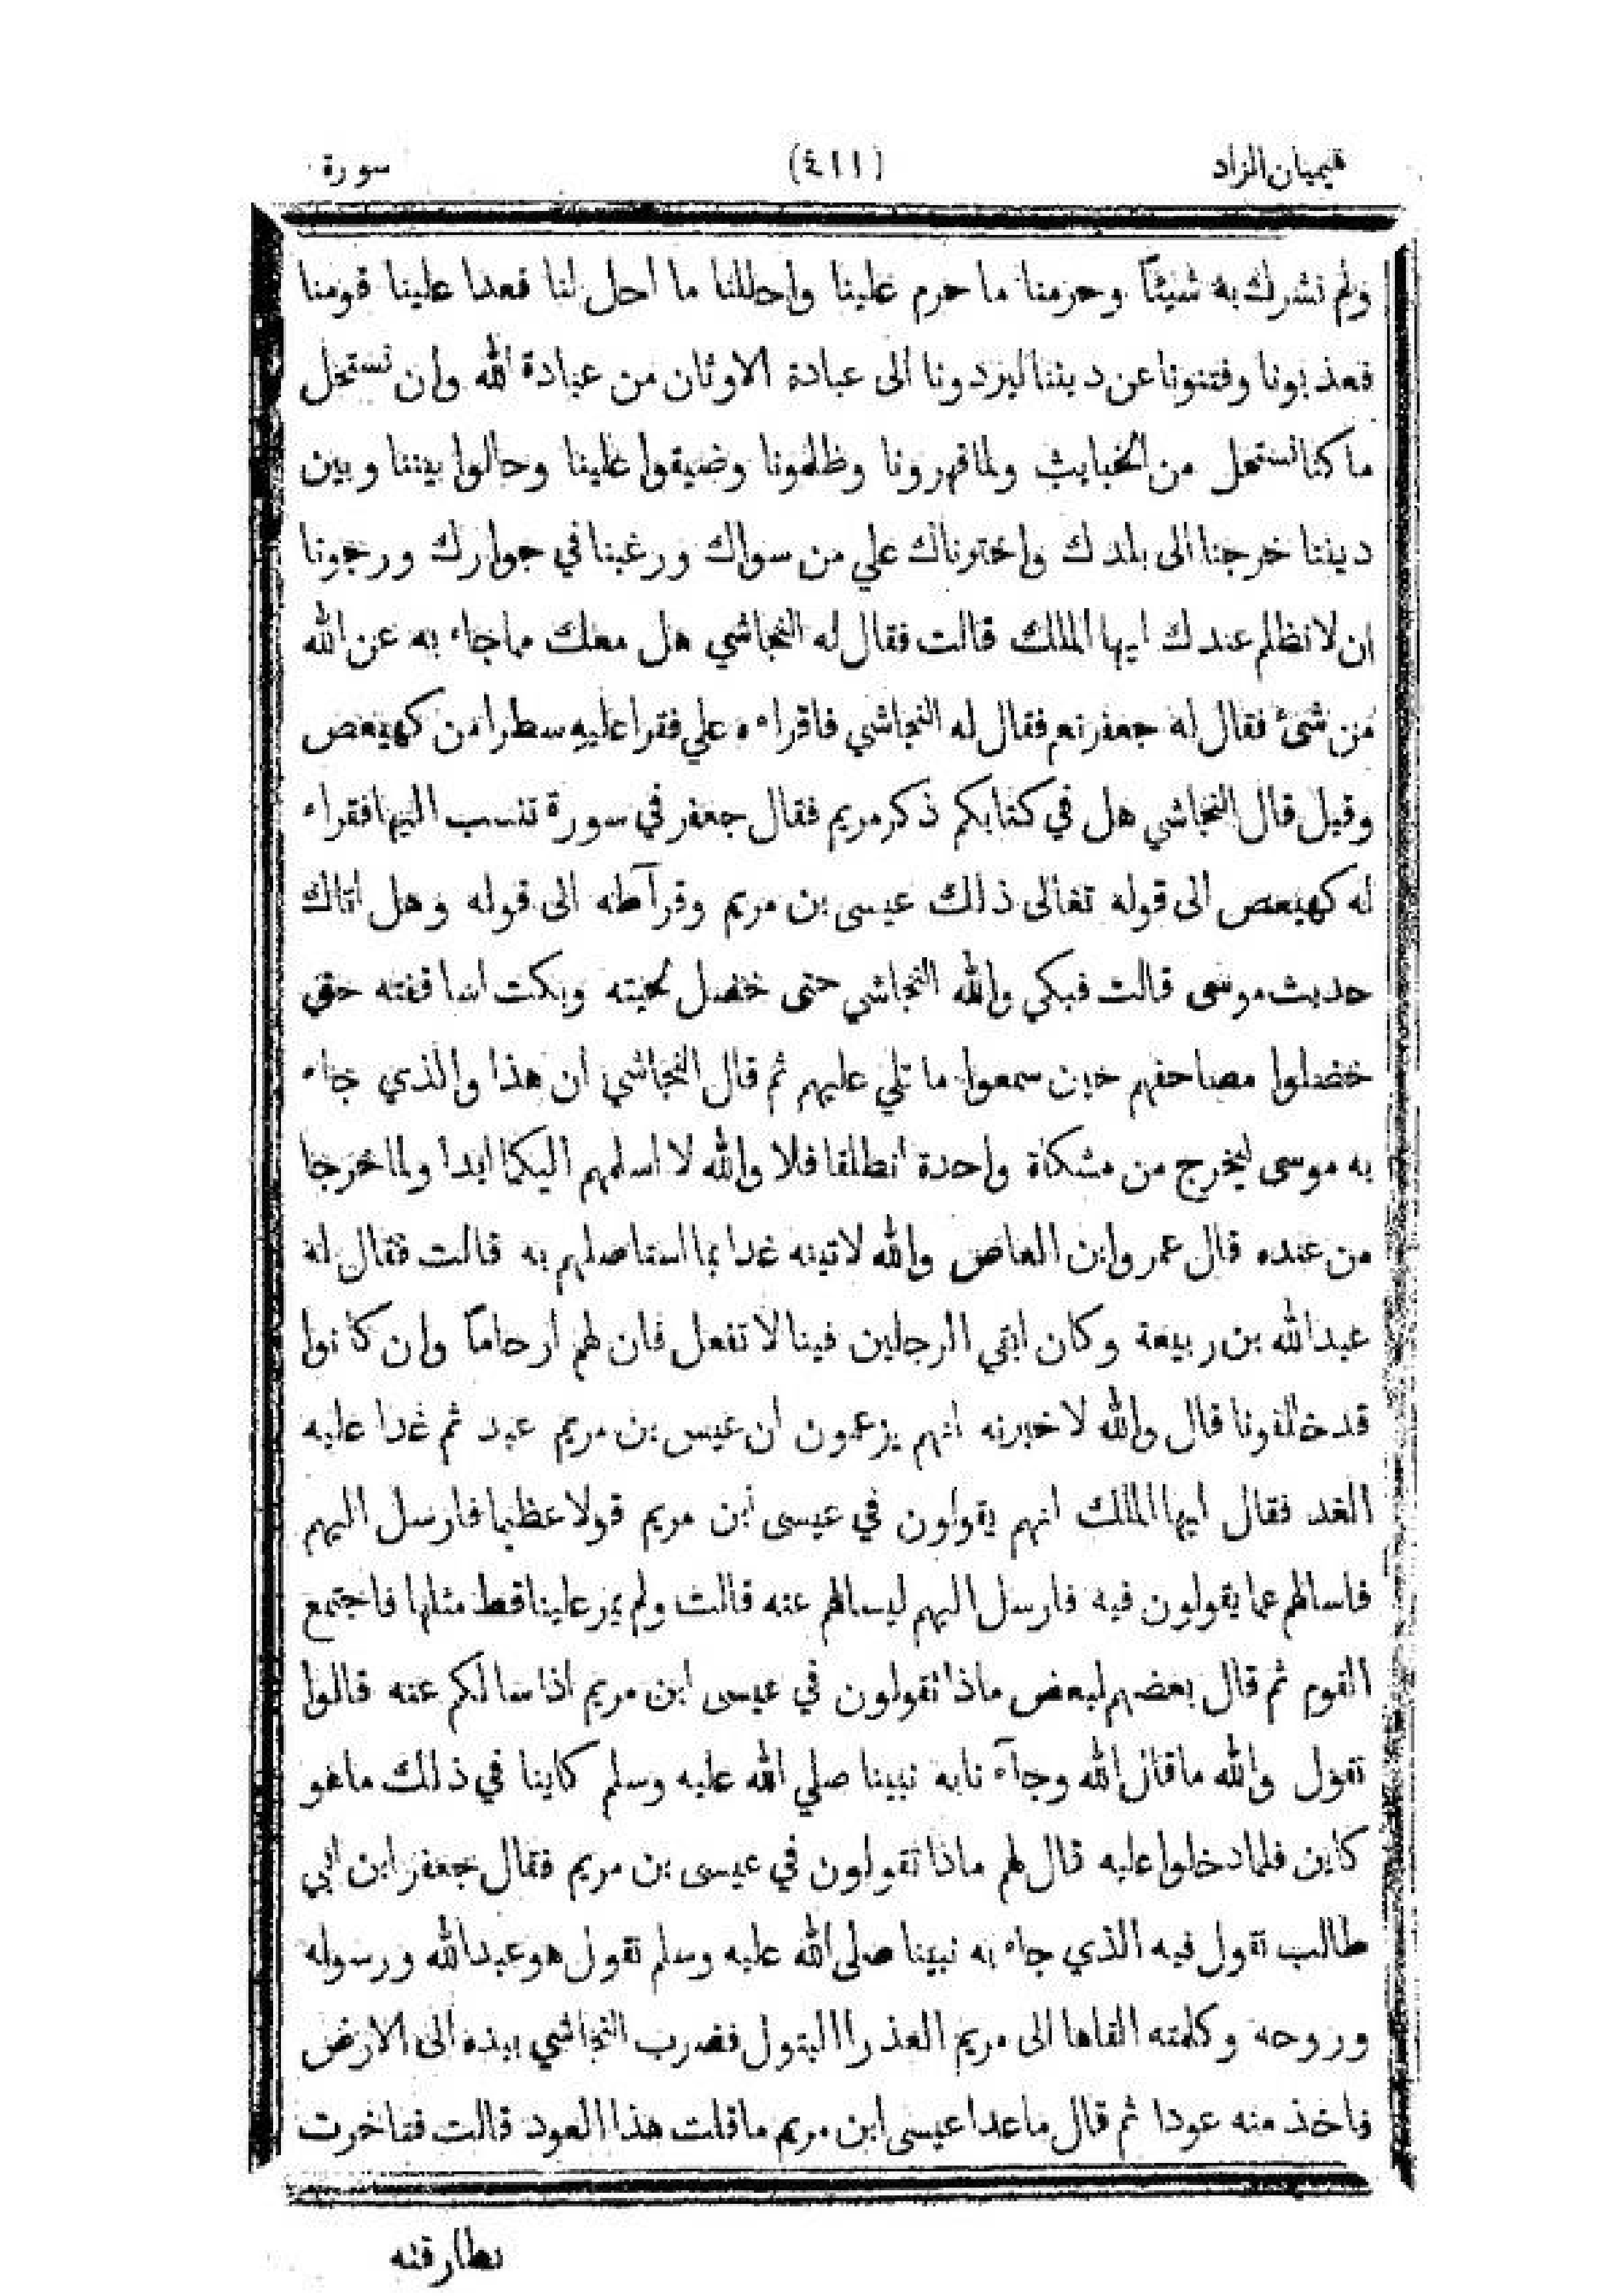 هيميان الزاد (٤١١) سورة
ولم نشرك به شيئاً وحرمنا ما حرم علينا واحللنا ما احل لنا فعدا علينا قومنا
فعذبونا وفتنونا عن ديننا ليردونا الى عبادة الاوثان من عبادة الله وان نستحل
ما كنا نستحل من الخبايث ولما قهرونا وظلمونا وضيقوا علينا وحالوا بيننا وبين
ديننا خرجنا الى بلدك واخترناك علي من سواك ورغبنا في جوارك ورجونا
ان لا نظلم عندك ايها الملك قالت فقال له النجاشي هل معك مما جاء به عن الله
من شئ فقال له جعفر نعم فقال له النجاشي فاقراءه علي فقرا عليه سطرا من كهيعص
وقيل قال النجاشي هل في كتابكم ذكر مريم فقال جعفر في سورة تنسب اليها فقراء
له كهيعص الى قوله تعالى ذلك عيسى بن مريم وقرآ طه الى قوله وهل اتاك
حديث موسى قالت فبكي والله النجاشي حتى خضل لحيته وبكت اساقفته حتى
خضلوا مصاحفهم حين سمعوا ما تلي عليهم ثم قال النجاشي ان هذا والذي جاء
به موسى ليخرج من مشكاة واحدة انطلقا فلا والله لا اسلمهم اليكما ابدا ولما خرجا
من عنده قال عمرو ابن العاص والله لاتينه غدا بما استاصلهم به قالت فقال له
عبد الله بن ربيعة وكان اتقي الرجلين فينا لا تفعل فان لهم ارحاماً وان كانوا
قد خالفونا قال والله لاخبرنه انهم يزعمون ان عيس بن مريم عبد ثم غدا عليه
الغد فقال ايها الملك انهم يقولون في عيسى ابن مريم قولا عظيما فارسل اليهم
فاسالهم عما يقولون فيه فارسل اليهم ليسالهم عنه قالت ولم يمر علينا قط مثلها فاجتمع
القوم ثم قال بعضهم لبعض ماذا تقولون في عيسى ابن مريم اذا سالكم عنه قالوا
نقول والله ما قال الله وجآء نا به نبينا صلي الله عليه وسلم كاينا في ذلك ما هو
كاين فلما دخلوا عليه قال لهم ماذا تقولون في عيسى بن مريم فقال جعفر ابن ابي
طالب نقول فيه الذي جاء به نبينا صلى الله عليه وسلم نقول هو عبد الله ورسوله
وروحه وكلمته القاها الى مريم العذرا البتول فضرب النجاشي بيده الى الارض
فاخذ منه عودا ثم قال ما عدا عيسى ابن مريم ما قلت هذا العود قالت فتناخرت
بطارقته